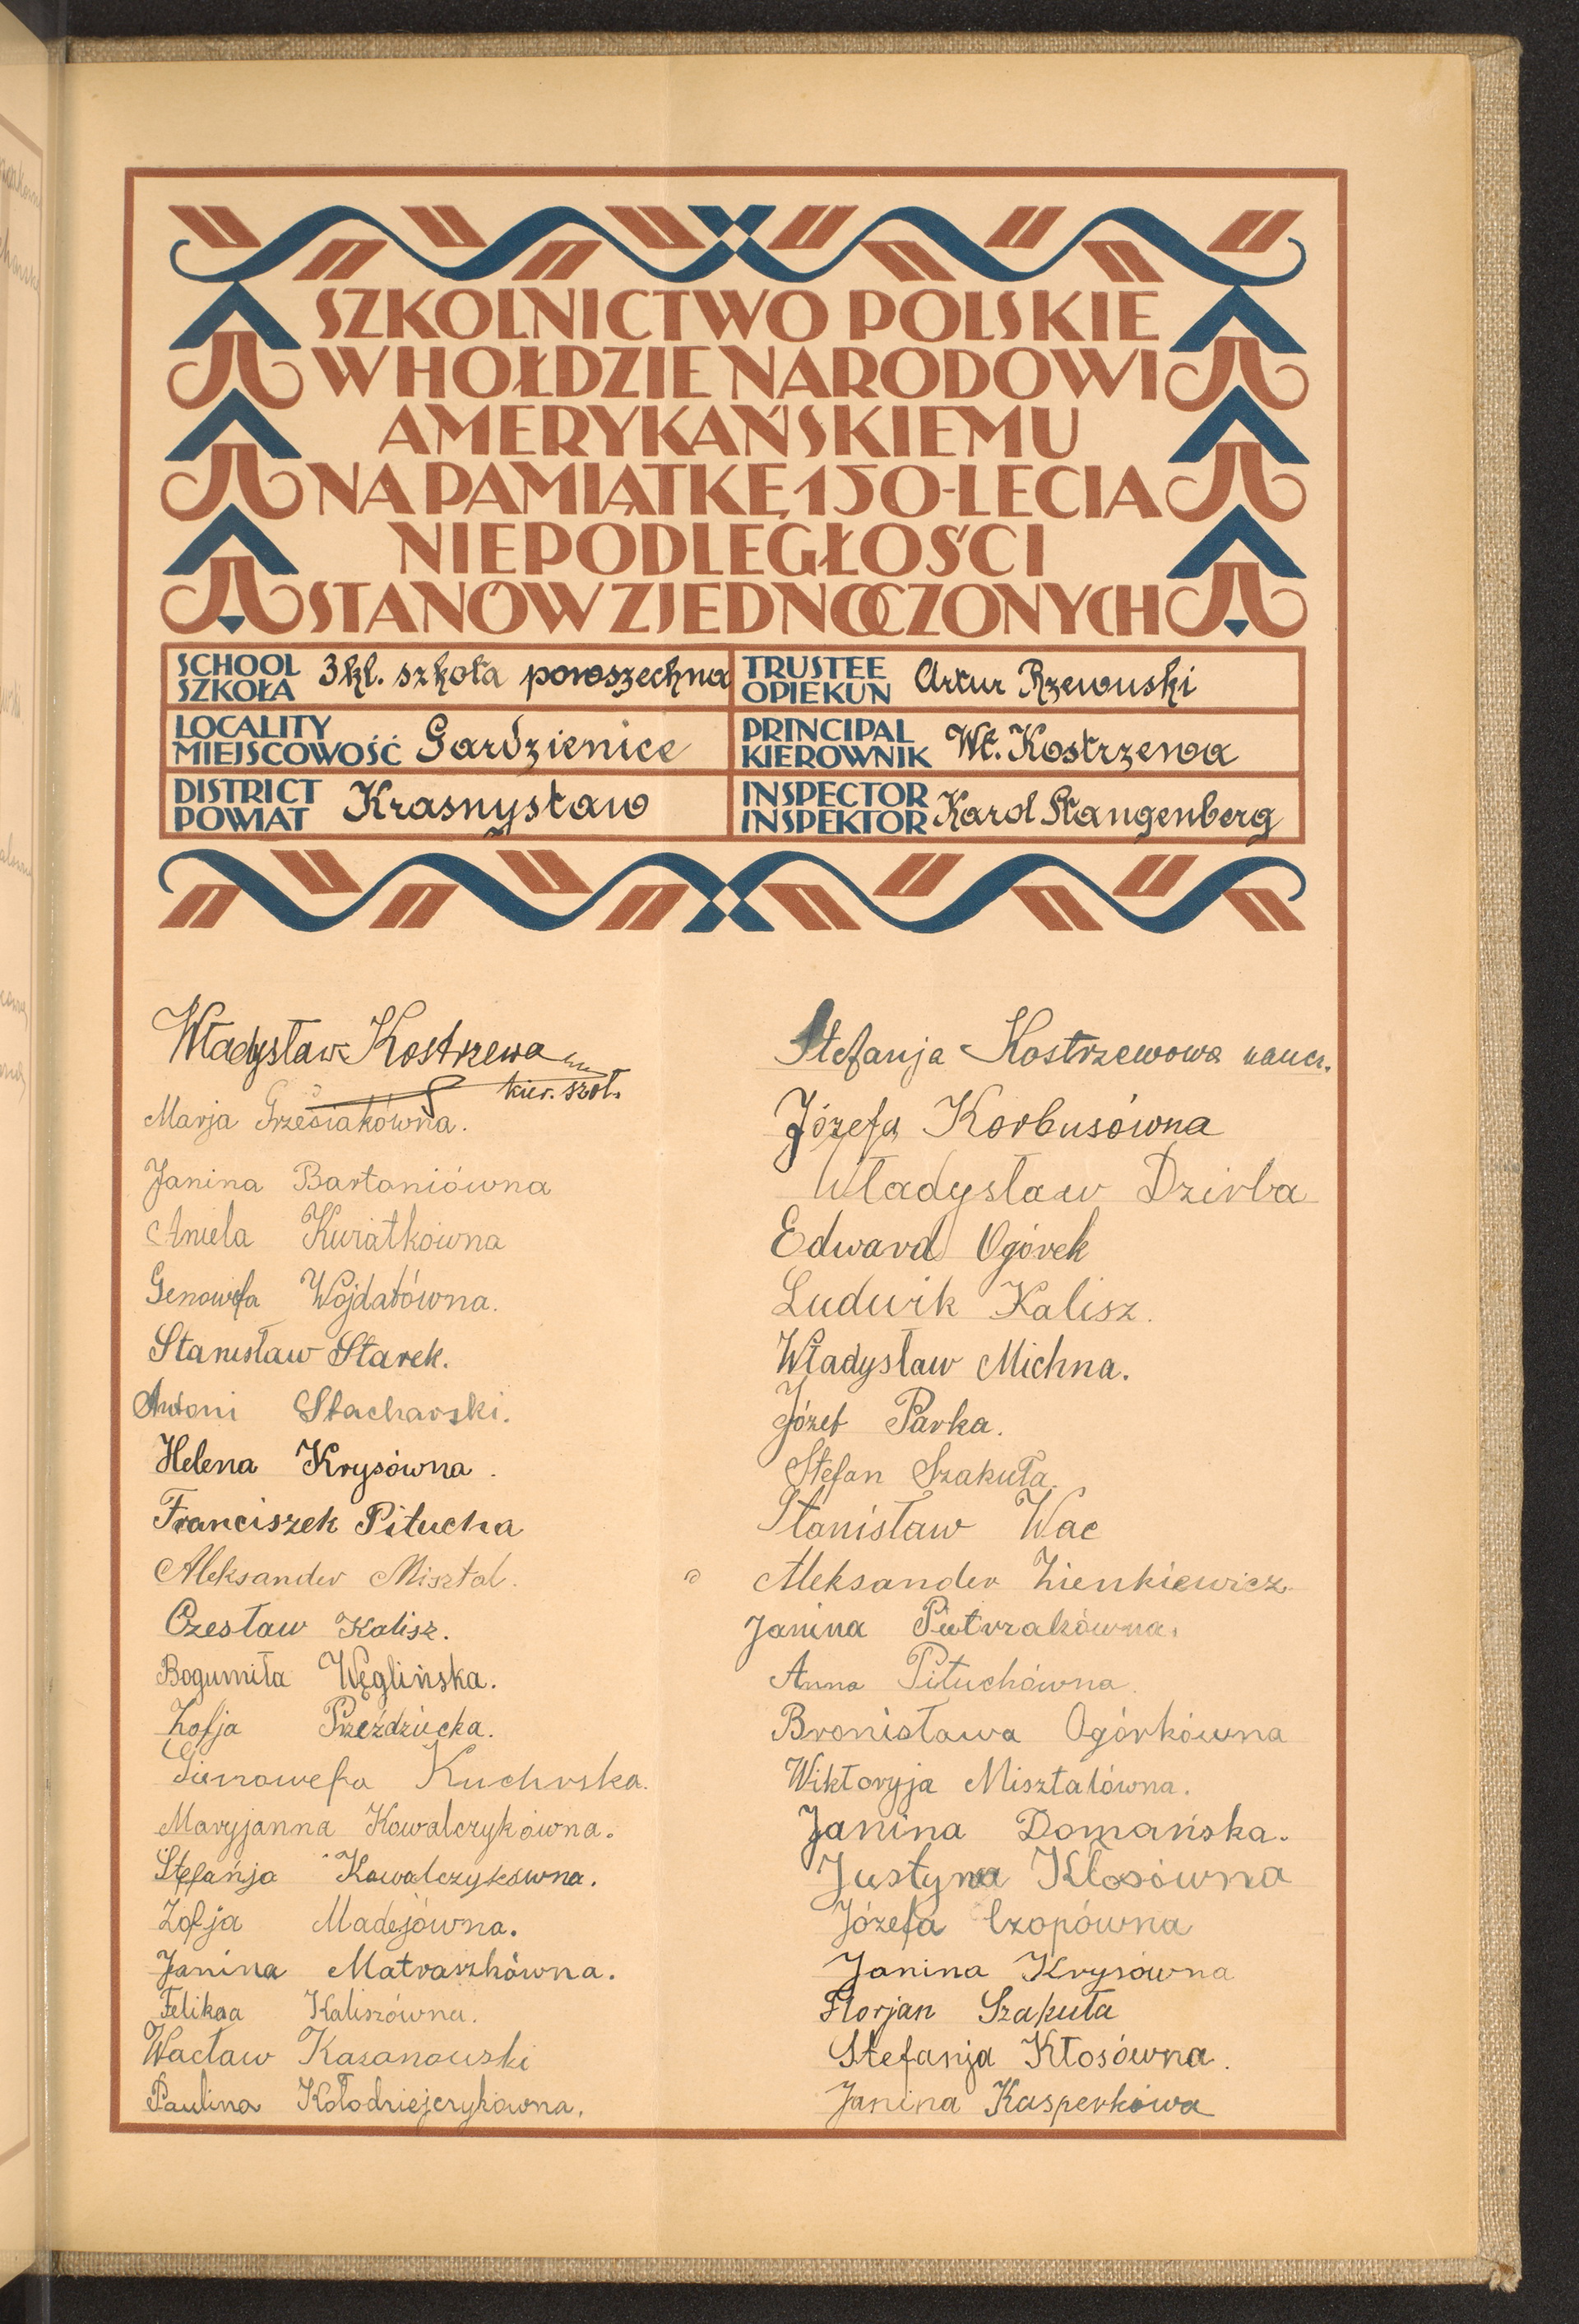 SZKOLNICTWO POLSKIE
W HOŁDZIE NARODOWI
AMERYKAŃSKIEMU
NA PAMIĄTKĘ 150-LECIA
NIEPODLEGŁOŚCI
STANÓW ZJEDNOCZONYCH
SCHOOL
SZKOŁA
3kl. szkoła powszechna
TRUSTEE
OPIEKUN
Artur Rzewuski
LOCALITY
MIEJSCOWOŚĆ
Gardzienice
PRINCIPAL
KIEROWNIK
Wł. Kostrzewa
DISTRICT
POWIAT
Krasnystaw
INSPECTOR
INSPEKTOR
Karol Stangenberg
Władysław Kostrzewa
kier. szoł.
Marja Grzesiakówna.
Janina Bartoniówna
Aniela Kwiatkówna
Genowefa Wójdatówna.
Stanisław Starek.
Antoni Stacharski.
Helena Krysówna.
Franciszek Pitucha
Aleksander Misztal.
Czesław Kalisz.
Bogumiła Węglińska.
Zofja Przeździecka.
Gienowefa Kuchrska.
Maryjanna Kowalczykówna.
Stefańja Kowalczykówna.
Zofja Madejówna.
Janina Matraszkówna.
Feliksa Kaliszówna.
Wacław Kazanowski
Paulina Kołodziejczykówna.
Stefanja Kostrzewowa naucz.
Józefa Korbusówna
Władysław Dzirba
Edward Ogórek
Ludwik Kalisz.
Władysław Michna.
Józef Parka.
Stefan Szakuła.
Stanisław Wac
Aleksander Zienkiewicz.
Janina Pietrzakówna.
Anna Pituchówna.
Bronisława Ogórkówna
Wiktoryja Misztalówna.
Janina Domańska.
Justyna Kłosówna
Józefa Czopówna
Janina Krysówna
Florjan Szakuła
Stefanja Kłosówna.
Janina Kasperkowa